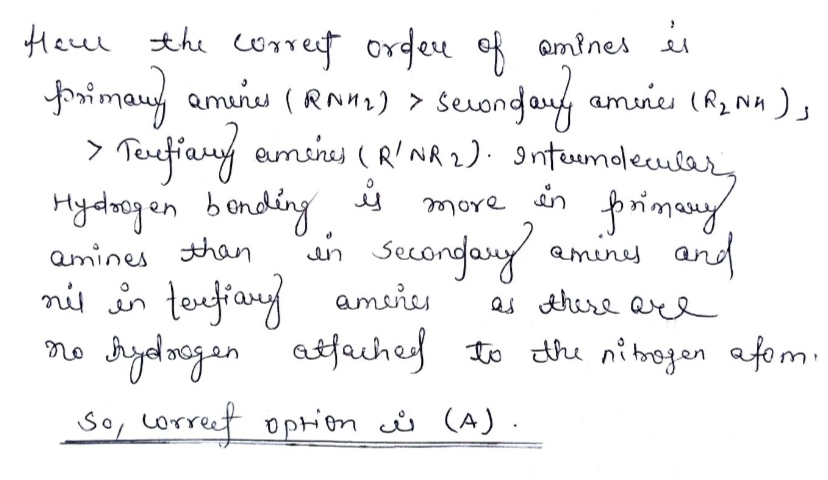 Here the correct order of amines is
primary amines (RNH2) > Secondary amines (R2NH),
> Tertiary amines (R'NR2). Intermolecular
Hydrogen bonding is more in primary
amines than in secondary amines and
nil in tertiary amines as there are
no hydrogen attached to the nitrogen atom.
So, correct option is (A).